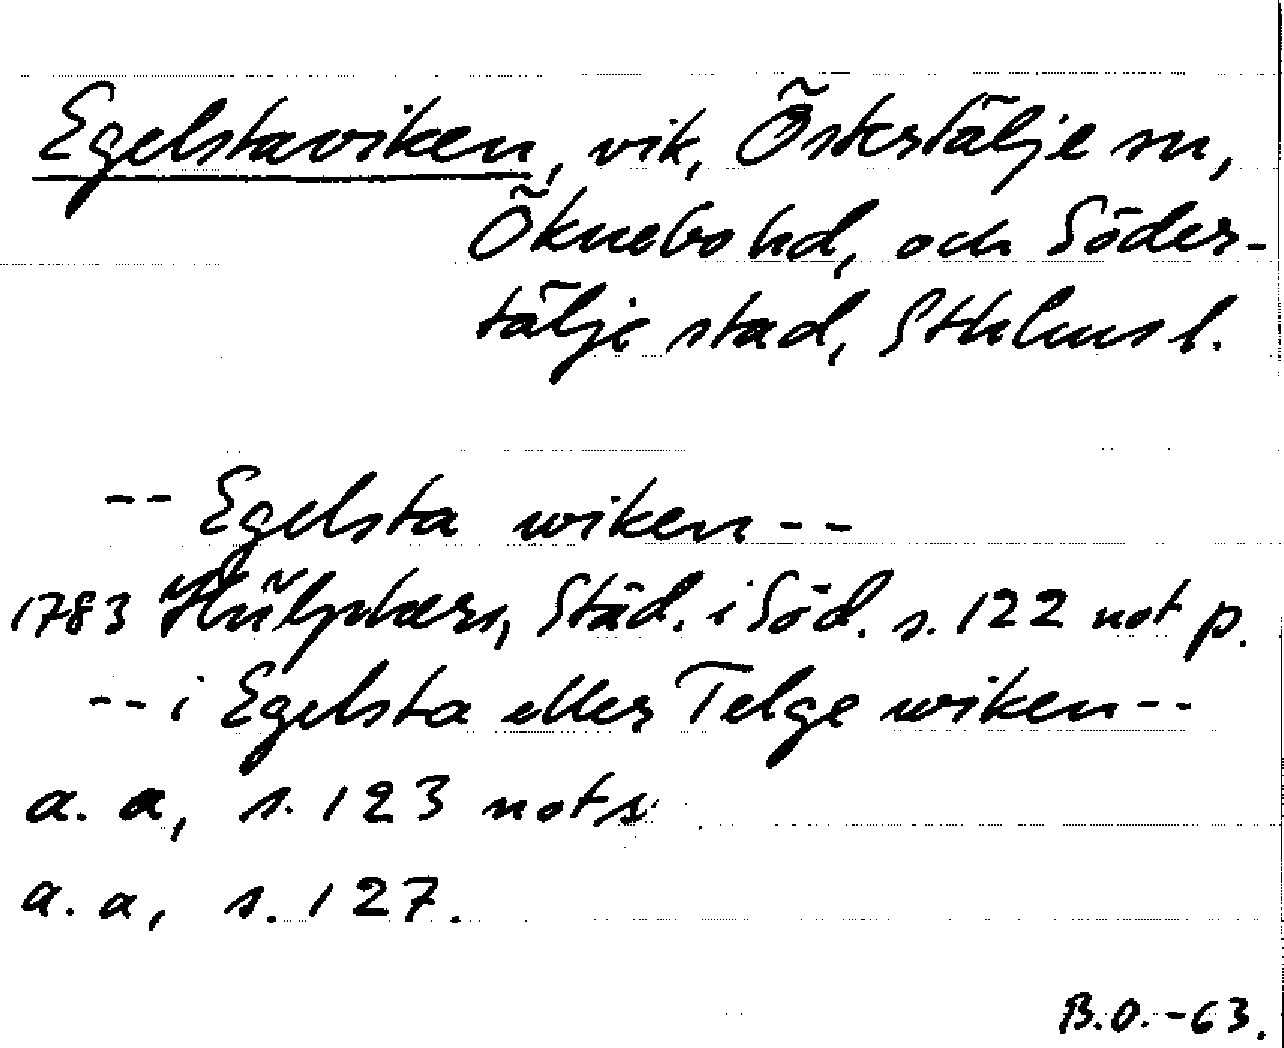 Egelstaviken, vik, Östertälje sn,
Öknebo hd, och Söder-
tälje stad, Sthlms l.
-- Egelsta wiken --
1783 Hülphers, Städ. i Söd. s. 122 not p.
-- i Egelsta eller Telge wiken --
a. a, s. 123 not s
a. a, s. 127.
B.O.-63.